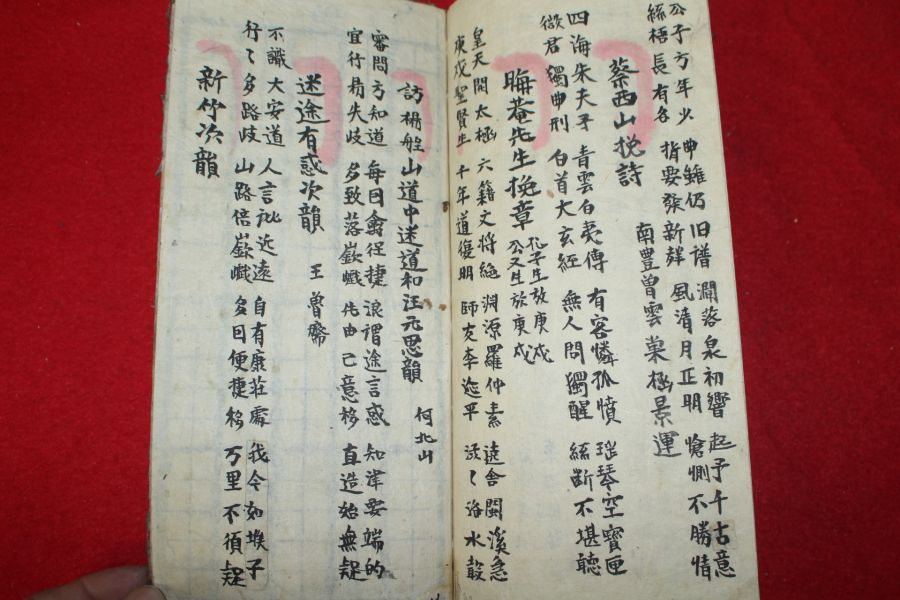 公子方年少 曲雖仍旧谱 瀾落泉初響 起予千古意
絲梧長有名 指要發新 風清月正明 愴惻不勝情
蔡西山挽詩 南豊曾雲巢極景運
四海朱夫子 青雲白夷傳 有客憐孤憤 瑶琴空寶匣
徵君獨典刑 白首太玄經 無人問獨醒 絲断不堪聴
晦菴先生挽章 孔子生於庚戌
公又生於庚戌
皇天開太極 六籍文将絶 淵源羅仲素 遠舍閩溪急
庚戌聖賢生 千年道復明 師友李延平 〻洛水
訪楊船山道中迷道和汪元思韻 何北山
審問方知道 每因貪徑捷 浪謂途言惑 知津要端的
宜行易失歧 多致落嶔巇 先由己意移 直造始無疑
迷途有惑次韻 王魯齋
不識大安道 人言訛近遠 自有康莊處 我今如堠子
行〻多路歧 山路倍嶔巇 多因便捷移 万里不須疑
新竹次韻